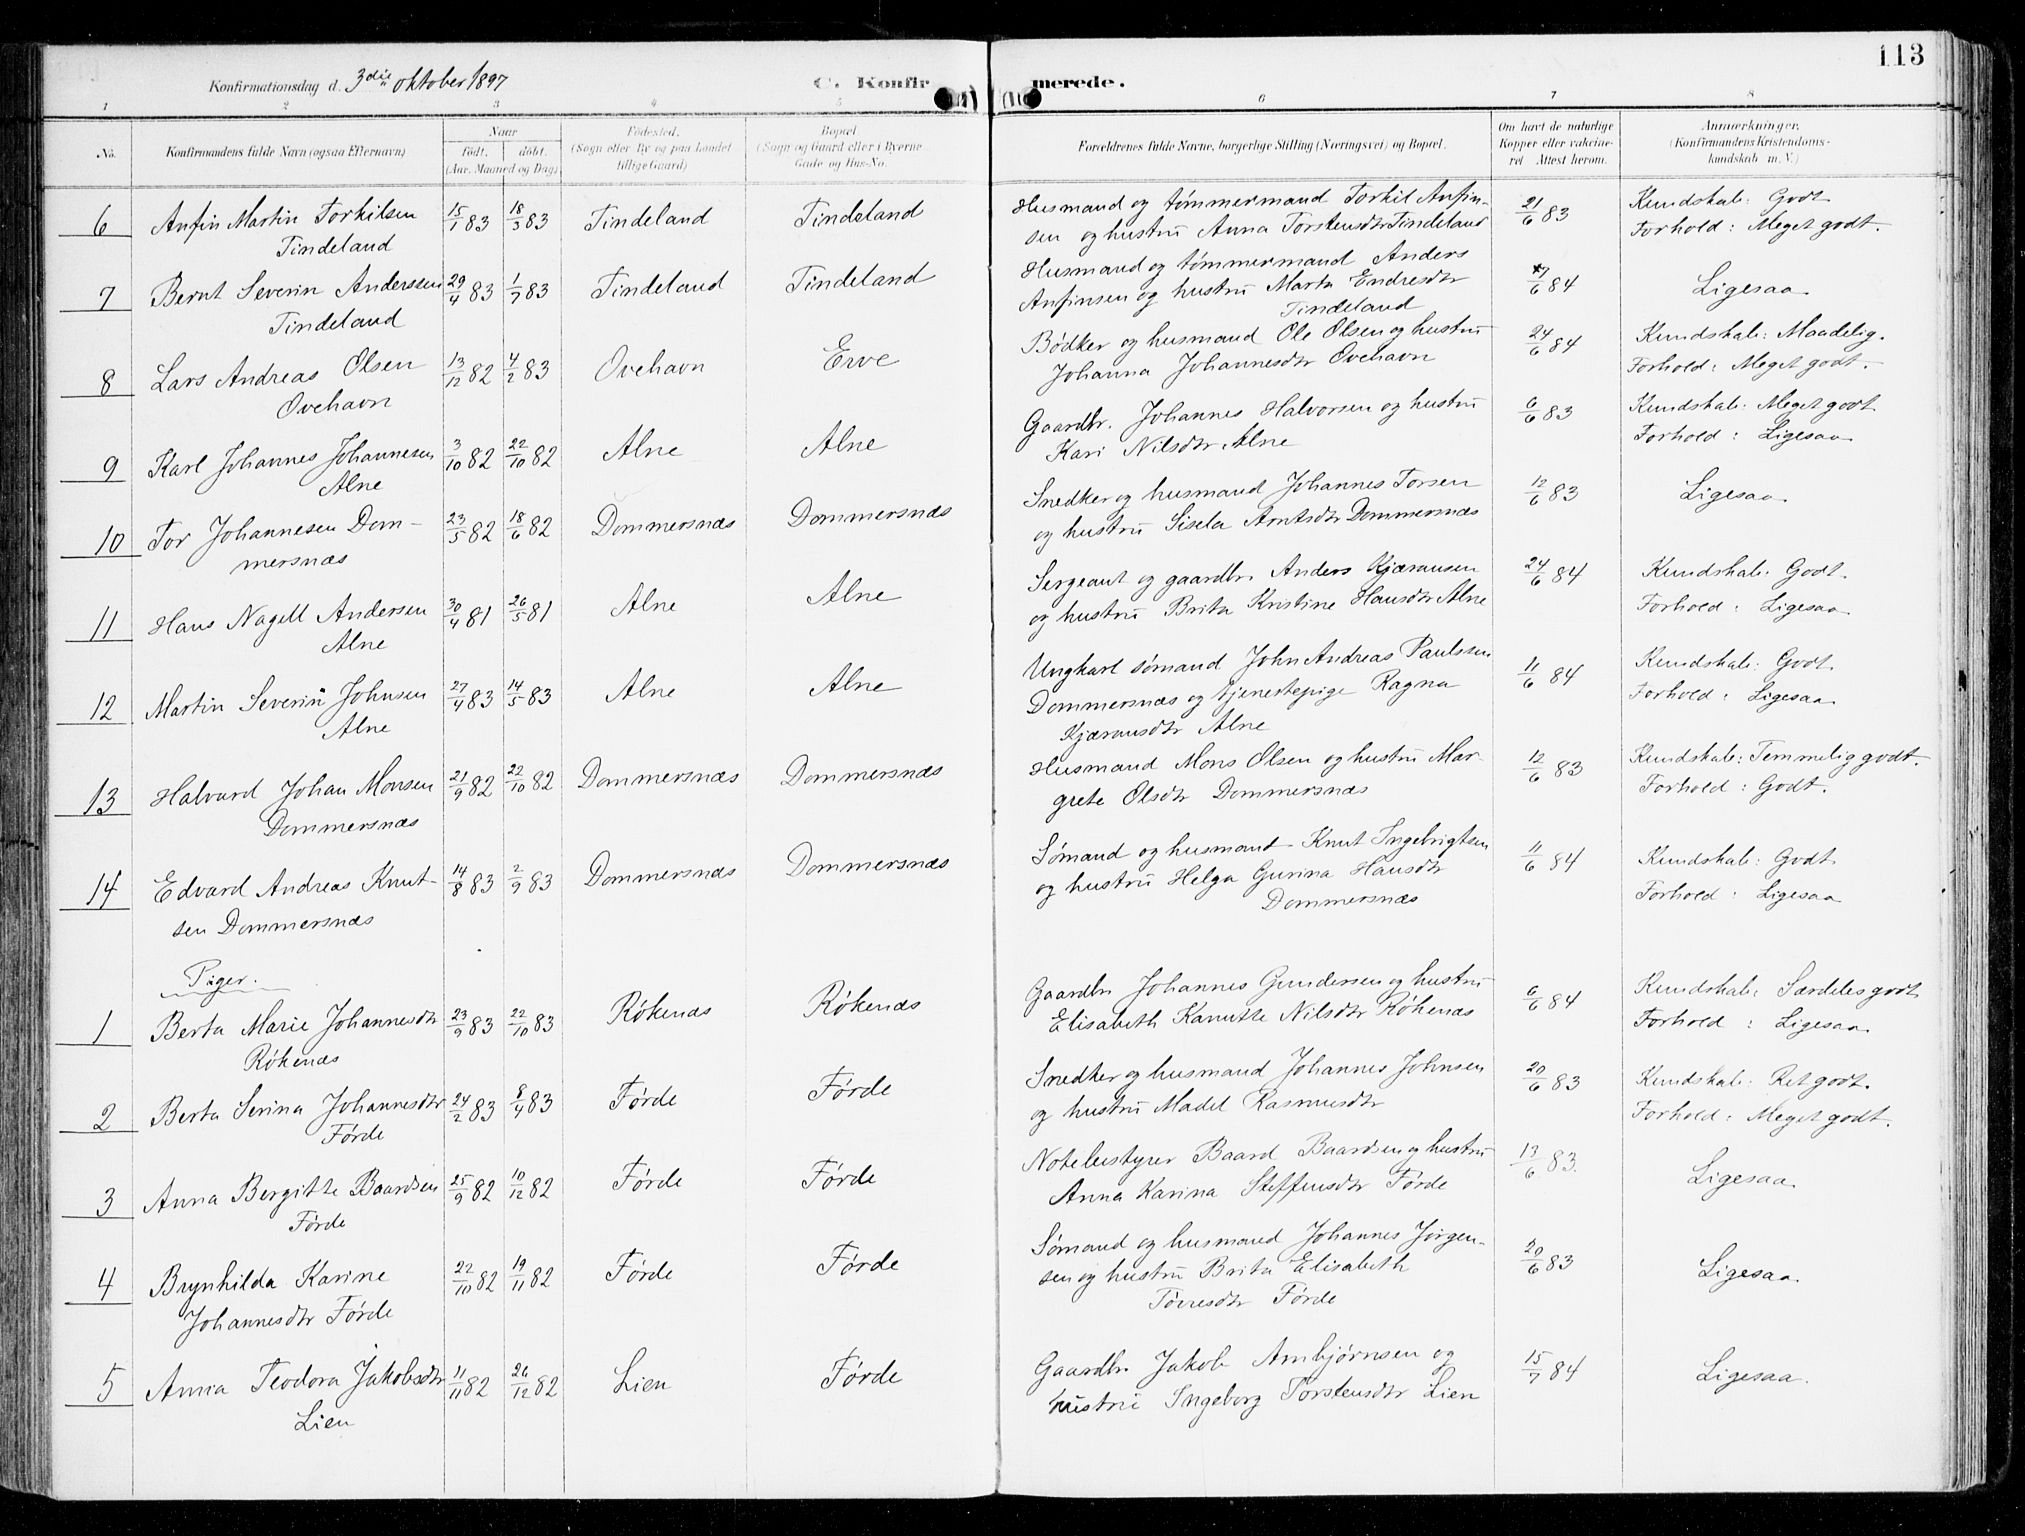 113
Konfirmationsdag d. 3die oktober 1897
C. Konfirmerede.
1 2 3 4 5 6 7 8
No.
Konfirmandens fulde Navn (ogsaa Efternavn)
Naar
födt. döbt.
(Aar, Maaned og Dag)
Födested.
(Sogn eller By og paa Landet
tillige Gaard)
Bopæl
(Sogn og Gaard eller i Byerne
Gade og Hus-No.
Forældrenes fulde Navne, borgerlige Stilling (Næringsvei) og Bopæl.
Om havt de naturlige
Kopper eller vakcine-
ret Attest herom.
Anmærkninger.
(Konfirmandens Kristendoms-
kundskab m. V.)
6 Anfin Martin Torkilsen 15/1 83 18/3 83 Tindeland Tindeland
Tindeland
Husmand og tømmermand Torkil Anfin-
sen og hustru Anna Torstensdtr Tindeland
21/6 83
Kundskab: Godt
Forhold: Meget godt.
7 Bernt Severin Anderssen 29/4 83 1/7 83 Tindeland Tindeland
Tindeland
Husmand og tømmermand Anders
Anfinsen og hustru Marta Endresdtr
Tindeland
7/6 84
Ligesaa.
8 Lars Andreas Olsen 13/12 82 4/2 83 Ovehavn Erve
Ovehavn
Bødker og husmand Ole Olsen og hustru
Johanna Johannesdtr Ovehavn
24/6 84
Kundskab: Maadelig.
Forhold: Meget godt.
9 Karl Johannes Johannesen 3/10 82 22/10 82 Alne Alne
Alne
Gaardbr. Johannes Halvorsen og hustru
Kari Nilsdtr Alne
6/6 83
Kundskab: Meget godt
Forhold: Ligesaa
10 Tor Johannesen Dom- 23/5 82 18/6 82 Dommersnæs Dommersnæs
mersnæs
Snedker og husmand Johannes Torsen
og hustru Sisela Arntsdtr Dommersnæs
12/6 83
Ligesaa
11 Hans Nagell Andersen 30/4 81 26/5 81 Alne Alne
Alne
Sergeant og gaardbr. Anders Kjæransen
og hustru Brita Kristine Hansdtr Alne
24/6 84
Kundskab: Godt.
Forhold: Ligesaa
12 Martin Severin Johnsen 27/4 83 14/5 83 Alne Alne
Alne
Ungkarl sømand John Andreas Paulssen
Dommersnæs og tjenestepige Ragna
Kjæransdtr Alne
11/6 84
Kundskab: Godt
Forhold: Ligesaa
13 Halvard Johan Monsen 21/9 82 22/10 82 Dommersnæs Dommersnæs
Dommersnæs
Husmand Mons Olsen og hustru Mar-
grete Olsdtr Dommersnæs
12/6 83
Kundskab: Temmelig godt.
Forhold: Godt.
14 Edvard Andreas Knut- 14/8 83 2/9 83 Dommersnæs Dommersnæs
sen Dommersnæs
Sømand og husmand Knut Ingebrigtsen
og hustru Helga Gurina Hansdtr
Dommersnæs
11/6 84
Kundskab: Godt
Forhold: Ligesaa
Piger.
1 Berta Marie Johannesdtr 23/9 83 22/10 83 Røkenæs Røkenæs
Røkenæs
Gaardbr Johannes Gundersen og hustru
Elisabeth Kanutte Nilsdtr Røkenæs
6/6 84
Kundskab: Særdeles godt
Forhold: Ligesaa
2 Berta Serina Johannesdtr 24/2 83 8/4 83 Førde Førde
Førde
Snedker og husmand Johannes Johnsen
og hustru Madel Rasmusdtr
20/6 83
Kundskab: Ret godt.
Forhold: Meget godt.
3 Anna Bergitte Baardsen 25/9 82 10/12 82 Førde Førde
Førde
Notebestyrer Baard Baardsen og hustru
Anna Karina Steffensdtr Førde
13/6 83
Ligesaa
4 Brynhilda Karine 22/10 82 19/11 82 Førde Førde
Johannesdtr Førde
Sømand og husmand Johannes Jørgen-
sen og hustru Brita Elisabeth
Tørresdtr Førde
20/6 83
Ligesaa.
5 Anna Teodora Jakobsdtr 11/11 82 26/12 82 Lien Førde
Lien
Gaardbr. Jakob Ambjørnsen og
hustru Ingeborg Torstensdtr Lien
15/7 84
Ligesaa.